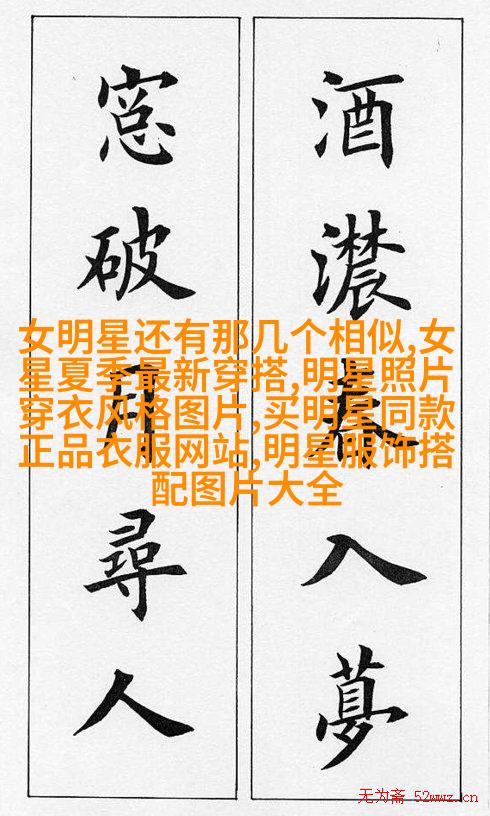 酒濃春入夢
窓破月尋人
女明星还有那几个相似,女
星夏季最新穿搭,明星照片
穿衣风格图片,买明星同款
正品衣服网站,明星服饰搭
配图片大全
无为斋 52wwz.cn